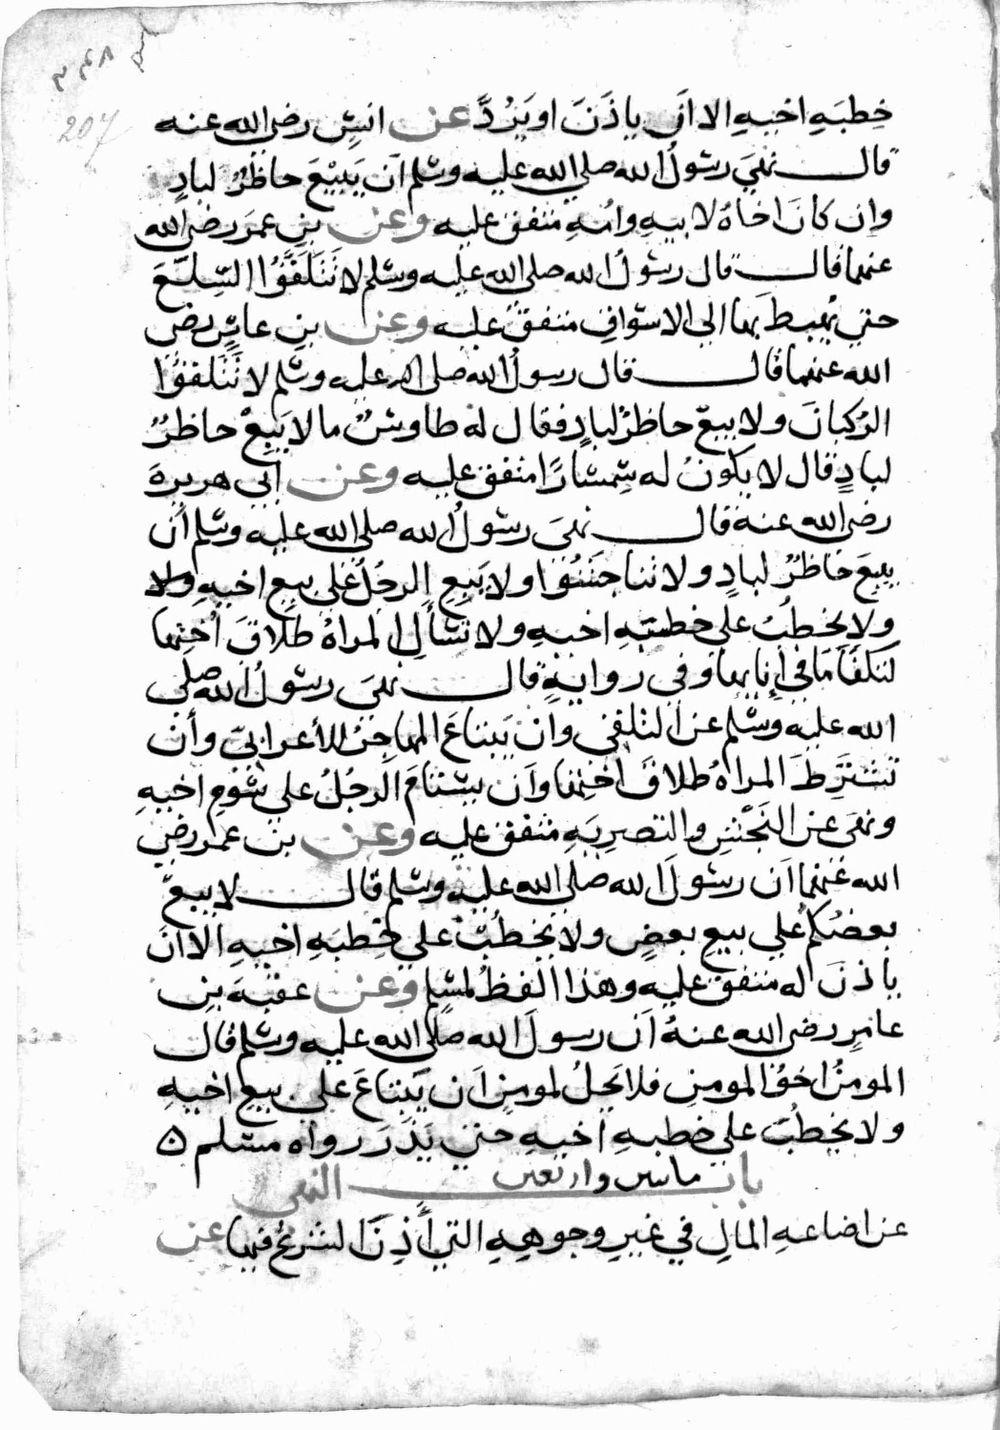 خطبَهِ اخيهِ الا اَن ياذَنَ او يَرُدَّ عن انسٍ رضى الله عنه
قال نهيَ رسولُ الله صلي الله عليه وسلم اَن يَبيْعَ حاظرٌ لبادٍ
وان كانَ اخاهُ لابيهِ وامّهِ متفق عليه وعن بنِ عمرَ رضى الله
عنهما قال قال رسولُ الله صلى الله عليه وسلم لا تَتَلقَّوُا السِّلَعَ
حتي يُهبطَ بها الي الاسواقِ متفق عليه وعن بنِ عباسٍ رضى
الله عنهما قال قال رسولُ الله صلى الله عليه وسلم لا تَتَلقَّوُا
الرُكبانَ ولا يبيعْ حاظرٌ لبادٍ فقال له طاوسٌ ما لا يَبِعْ حاظرٌ
لبادٍ قال لا يكونُ له سِمسَارًا متفق عليه وعن ابي هريرةَ
رضى الله عنه قال نهيَ رسولُ الله صلى الله عليه وسلم أن
يبيعَ حَاظرٌ لبادٍ ولا تناجَشُوا ولا يَبيعِ الرجُلُ عَلي بيعِ اخيهِ ولا
ولا يخطبُ علي خطبتهِ اخيهِ ولا تسأَلِ المراةُ طلاقَ اُختِها
لتكفَأَ مَا في إنايها وفي روايةٍ قال نهيَ رسولُ الله صلى
الله عليه وسلم عن التلقي وان يَبتاعَ المهاجرُ للأعرابيّ وأن
تشترِطَ المراةُ طلاقَ اختِها واَن يستامَ الرجُلُ علي سَومِ اخيهِ
ونهَى عن النَجْشِ والتصريَهِ متفق عليه وعن بن عمر رضي
الله عنهما اَن رسولَ الله صلى الله عليه وسلم قال لا يبيعْ
بعضُكم علي بيعِ بعضٍ ولا يخطُبْ علي خِطبَهِ اخيهِ الا ان
ياذنَ له متفق عليه وهذا الفظُ لمسلم وعن عقبهَ بنِ
عامرٍ رضى الله عنهُ اَن رسولَ الله صلى الله عليه وسلم قال
المومنُ اخوُ المومنِ فلا يحلُ لمومنٍ اَن يَبتاعَ علي بيعِ اخيهِ
ولا يخطُبَ علي خطبهِ اخيهِ حتي يَذَرَ رواه مسلم ٥
باب ماىىىں واربعىں النهي
عن اضاعهِ المالِ في غيرِ وجوههِ التي أَذِنَ الشرعُ فيها عن
207